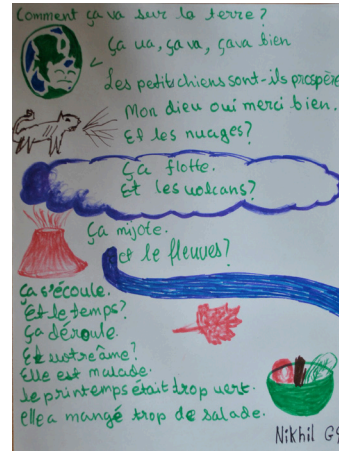 Comment ça va sur la terre?
Ça va, ça va, ça va bien
Les petits chiens sont-ils prospère
Mon dieu oui merci bien.
Et les nuages?
Ça flotte.
Et les volcans?
Ça mijote.
et le fleuves?
Ça s'écoule.
Et le temps?
Ça déroule.
Et votre âme?
Elle est malade.
le printemps était trop vert.
elle a mangé trop de salade.
Nikhil